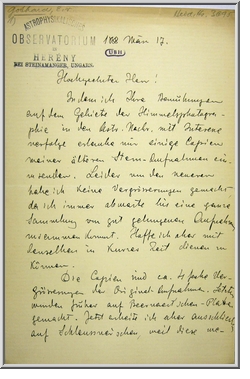 ASTROPHYSIKALISCHES
OBSERVATORIUM
HERENY
BEI STEINAMANGER, UNGARN.
188 März 17.
Hochgeehrter Herr!
Indem ich Ihre Bemühungen
auf dem Gebiete der Himmelsphotogra-
phie in den Astr. Nachr. mit Interesse
verfolge erlaube mir einige Copien
meiner älteren Stern-Aufnahmen ein-
zusenden. Leider von den neueren
habe ich keine Vergrösserungen gemacht
da ich immer abwarte bis eine ganze
Sammlung von gut gelungenen Aufnahmen
zusammen kommt. Hoffe ich aber mit
denselben in kurzer Zeit dienen zu
können.
Die Copien sind ca. fache Ver-
grösserungen der Original-Aufnahme. Letzte
wurden früher auf Beernaert'schen-Platten
gemacht. Jetzt arbeite ich aber ausschliessl.
auf Schleussner'schen, weil diese